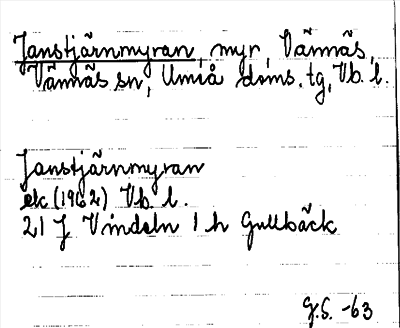 Janstjärnmyran, myr, Vännäs,
Vännäs sn, Umeå doms. tg, Vb. l.
Janstjärnmyran
ek (1962) Vb. l.
21 J Vindeln 1 h Gullbäck
G.S. -63